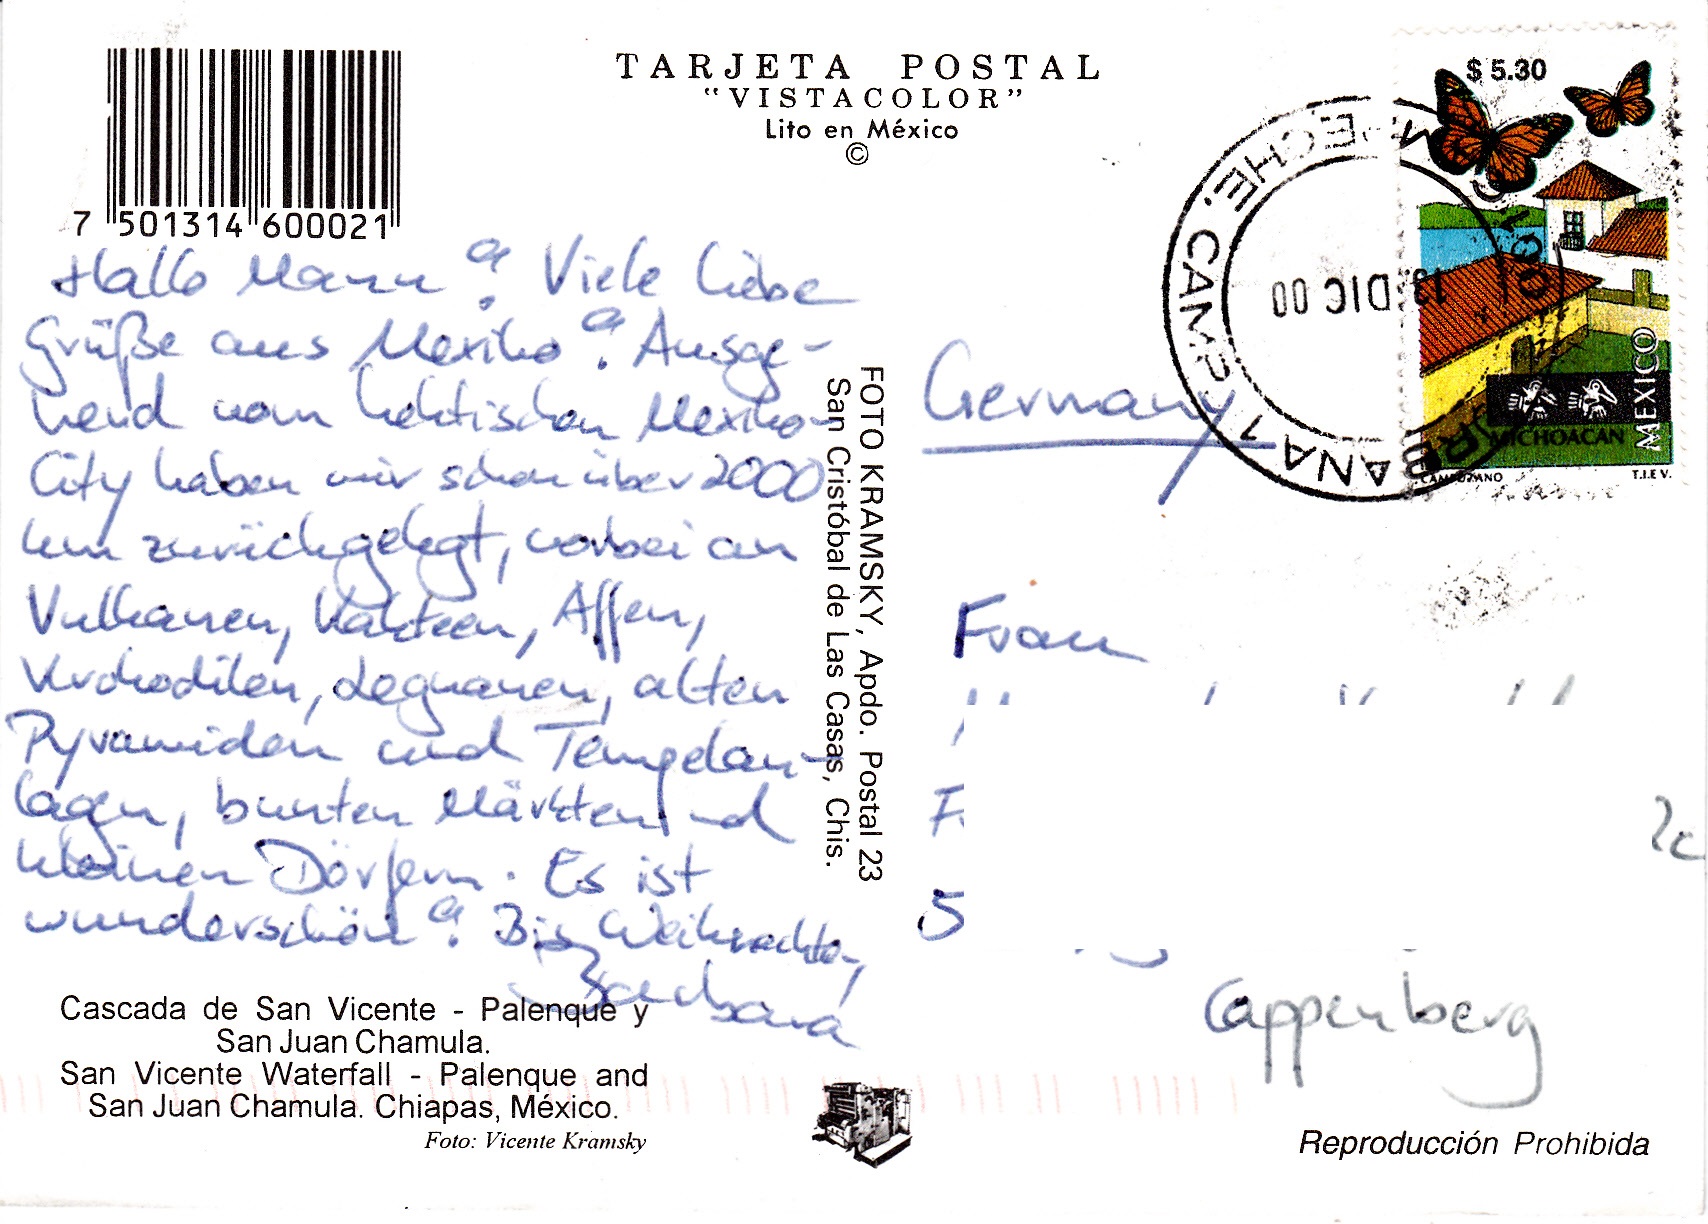 TARJETA POSTAL
"VISTACOLOR"
Lito en México
©
7 501314 600021
Hallo Mama! Viele liebe
Grüße aus Mexiko! Ausge-
hend vom hektischen Mexiko-
City haben wir schon über 2000
km zurückgelegt, vorbei an
Vulkanen, Kakteen, Affen,
Krokodilen, Leguanen, alten
Pyramiden und Tempelan-
lagen, bunten Märkten und
kleinen Dörfern. Es ist
wunderschön! Bis Weihnachten,
Barbara
Cascada de San Vicente - Palenque y
San Juan Chamula.
San Vicente Waterfall - Palenque and
San Juan Chamula. Chiapas, México.
Foto: Vicente Kramsky
FOTO KRAMSKY, Apdo. Postal 23
San Cristóbal de Las Casas, Chis.
$ 5.30
MEXICO
MICHOACAN
CAMPUZANO
T.I.E V.
CAMPECHE, CAMP
13 DIC 00
Germany
Frau
5
Cappenberg
Reproducción Prohibida